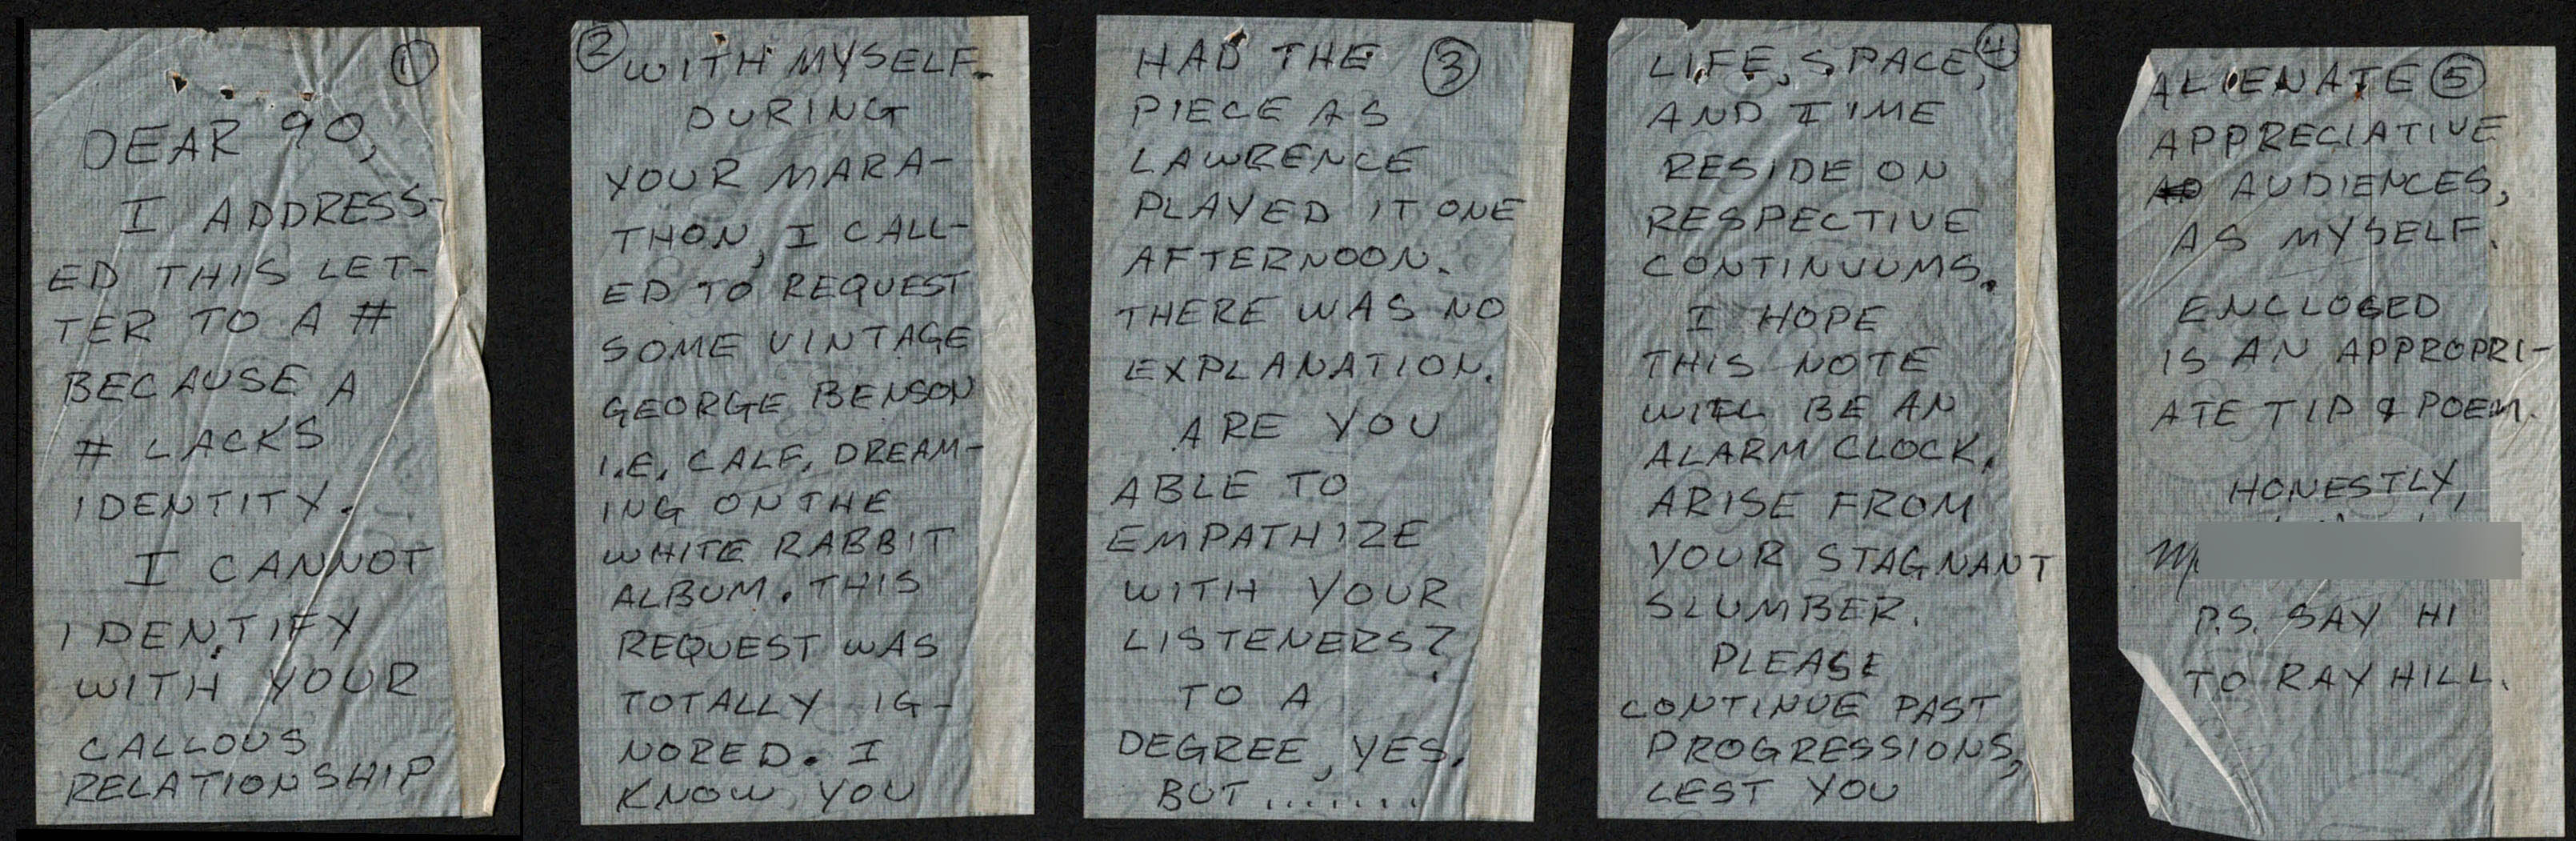 ①
DEAR 90,
I ADDRESS-
ED THIS LET-
TER TO A #
BECAUSE A
# LACKS
IDENTITY.
I CANNOT
IDENTIFY
WITH YOUR
CALLOUS
RELATIONSHIP
②
WITH MYSELF.
DURING
YOUR MARA-
THON, I CALL-
ED TO REQUEST
SOME VINTAGE
GEORGE BENSON
I.E. CALF. DREAM-
ING ON THE
WHITE RABBIT
ALBUM. THIS
REQUEST WAS
TOTALLY IG-
NORED. I
KNOW YOU
③
HAD THE
PIECE AS
LAWRENCE
PLAYED IT ONE
AFTERNOON.
THERE WAS NO
EXPLANATION.
ARE YOU
ABLE TO
EMPATHIZE
WITH YOUR
LISTENERS?
TO A
DEGREE, YES.
BUT........
④
LIFE, SPACE,
AND TIME
RESIDE ON
RESPECTIVE
CONTINUUMS.
I HOPE
THIS NOTE
WILL BE AN
ALARM CLOCK,
ARISE FROM
YOUR STAGNANT
SLUMBER.
PLEASE
CONTINUE PAST
PROGRESSIONS,
LEST YOU
⑤
ALIENATE
APPRECIATIVE
AUDIENCES,
AS MYSELF.
ENCLOSED
IS AN APPROPRI-
ATE TIP & POEM.
HONESTLY,
P.S. SAY HI
TO RAY HILL.